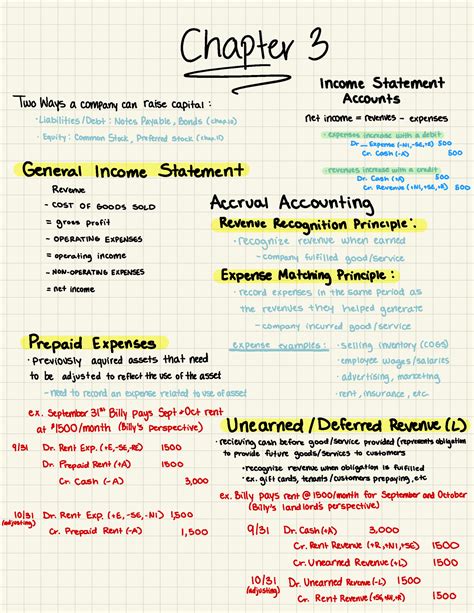 Chapter 3
Two Ways a company can raise capital:
· Liabilities/Debt: Notes Payable, Bonds (chap.10)
· Equity: Common Stock, Preferred Stock (chap.11)
Income Statement
Accounts
net income = revenues - expenses
· expenses increase with a debit
Dr. Expense (-NI, -SE, +E) 500
Cr. Cash (-A) 500
· revenues increase with a credit
Dr. Cash (+A) 500
Cr. Revenue (+NI, +SE, +R) 500
General Income Statement
Revenue
- COST OF GOODS SOLD
= gross profit
- OPERATING EXPENSES
= operating income
- NON-OPERATING EXPENSES
= net income
Accrual Accounting
Revenue Recognition Principle:
· recognize revenue when earned
- company fulfilled good/service
Expense Matching Principle:
· record expenses in the same period as
the revenues they helped generate
- company incurred good/service
expense examples: · selling inventory (COGS)
· employee wages/salaries
· advertising, marketing
· rent, insurance, etc
Prepaid Expenses
· previously aquired assets that need
to be adjusted to reflect the use of the asset
- need to record an expense related to use of asset
ex. September 31st Billy pays Sept + Oct rent
at $1500/month (Billy's perspective)
9/31 Dr. Rent Exp. (+E, -SE, -RE) 1500
Dr. Prepaid Rent (+A) 1500
Cr. Cash (-A) 3,000
10/31 Dr. Rent Exp. (+E, -SE, -NI) 1,500
(adjusting) Cr. Prepaid Rent (-A) 1,500
Unearned/Deferred Revenue (L)
· recieving cash before good/service provided (represents obligation
to provide future goods/services to customers
· recognize revenue when obligation is fulfilled
· ex. gift cards, tenants/customers prepaying, etc
ex. Billy pays rent @ 1500/month for September and October
(Billy's landlord's perspective)
9/31 Dr. Cash (+A) 3,000
Cr. Rent Revenue (+R, +NI, +SE) 1500
Cr. Unearned Revenue (+L) 1500
10/31 Dr. Unearned Revenue (-L) 1500
(adjusting) Cr. Rent Revenue 1500
(+SE, +NI, +R)